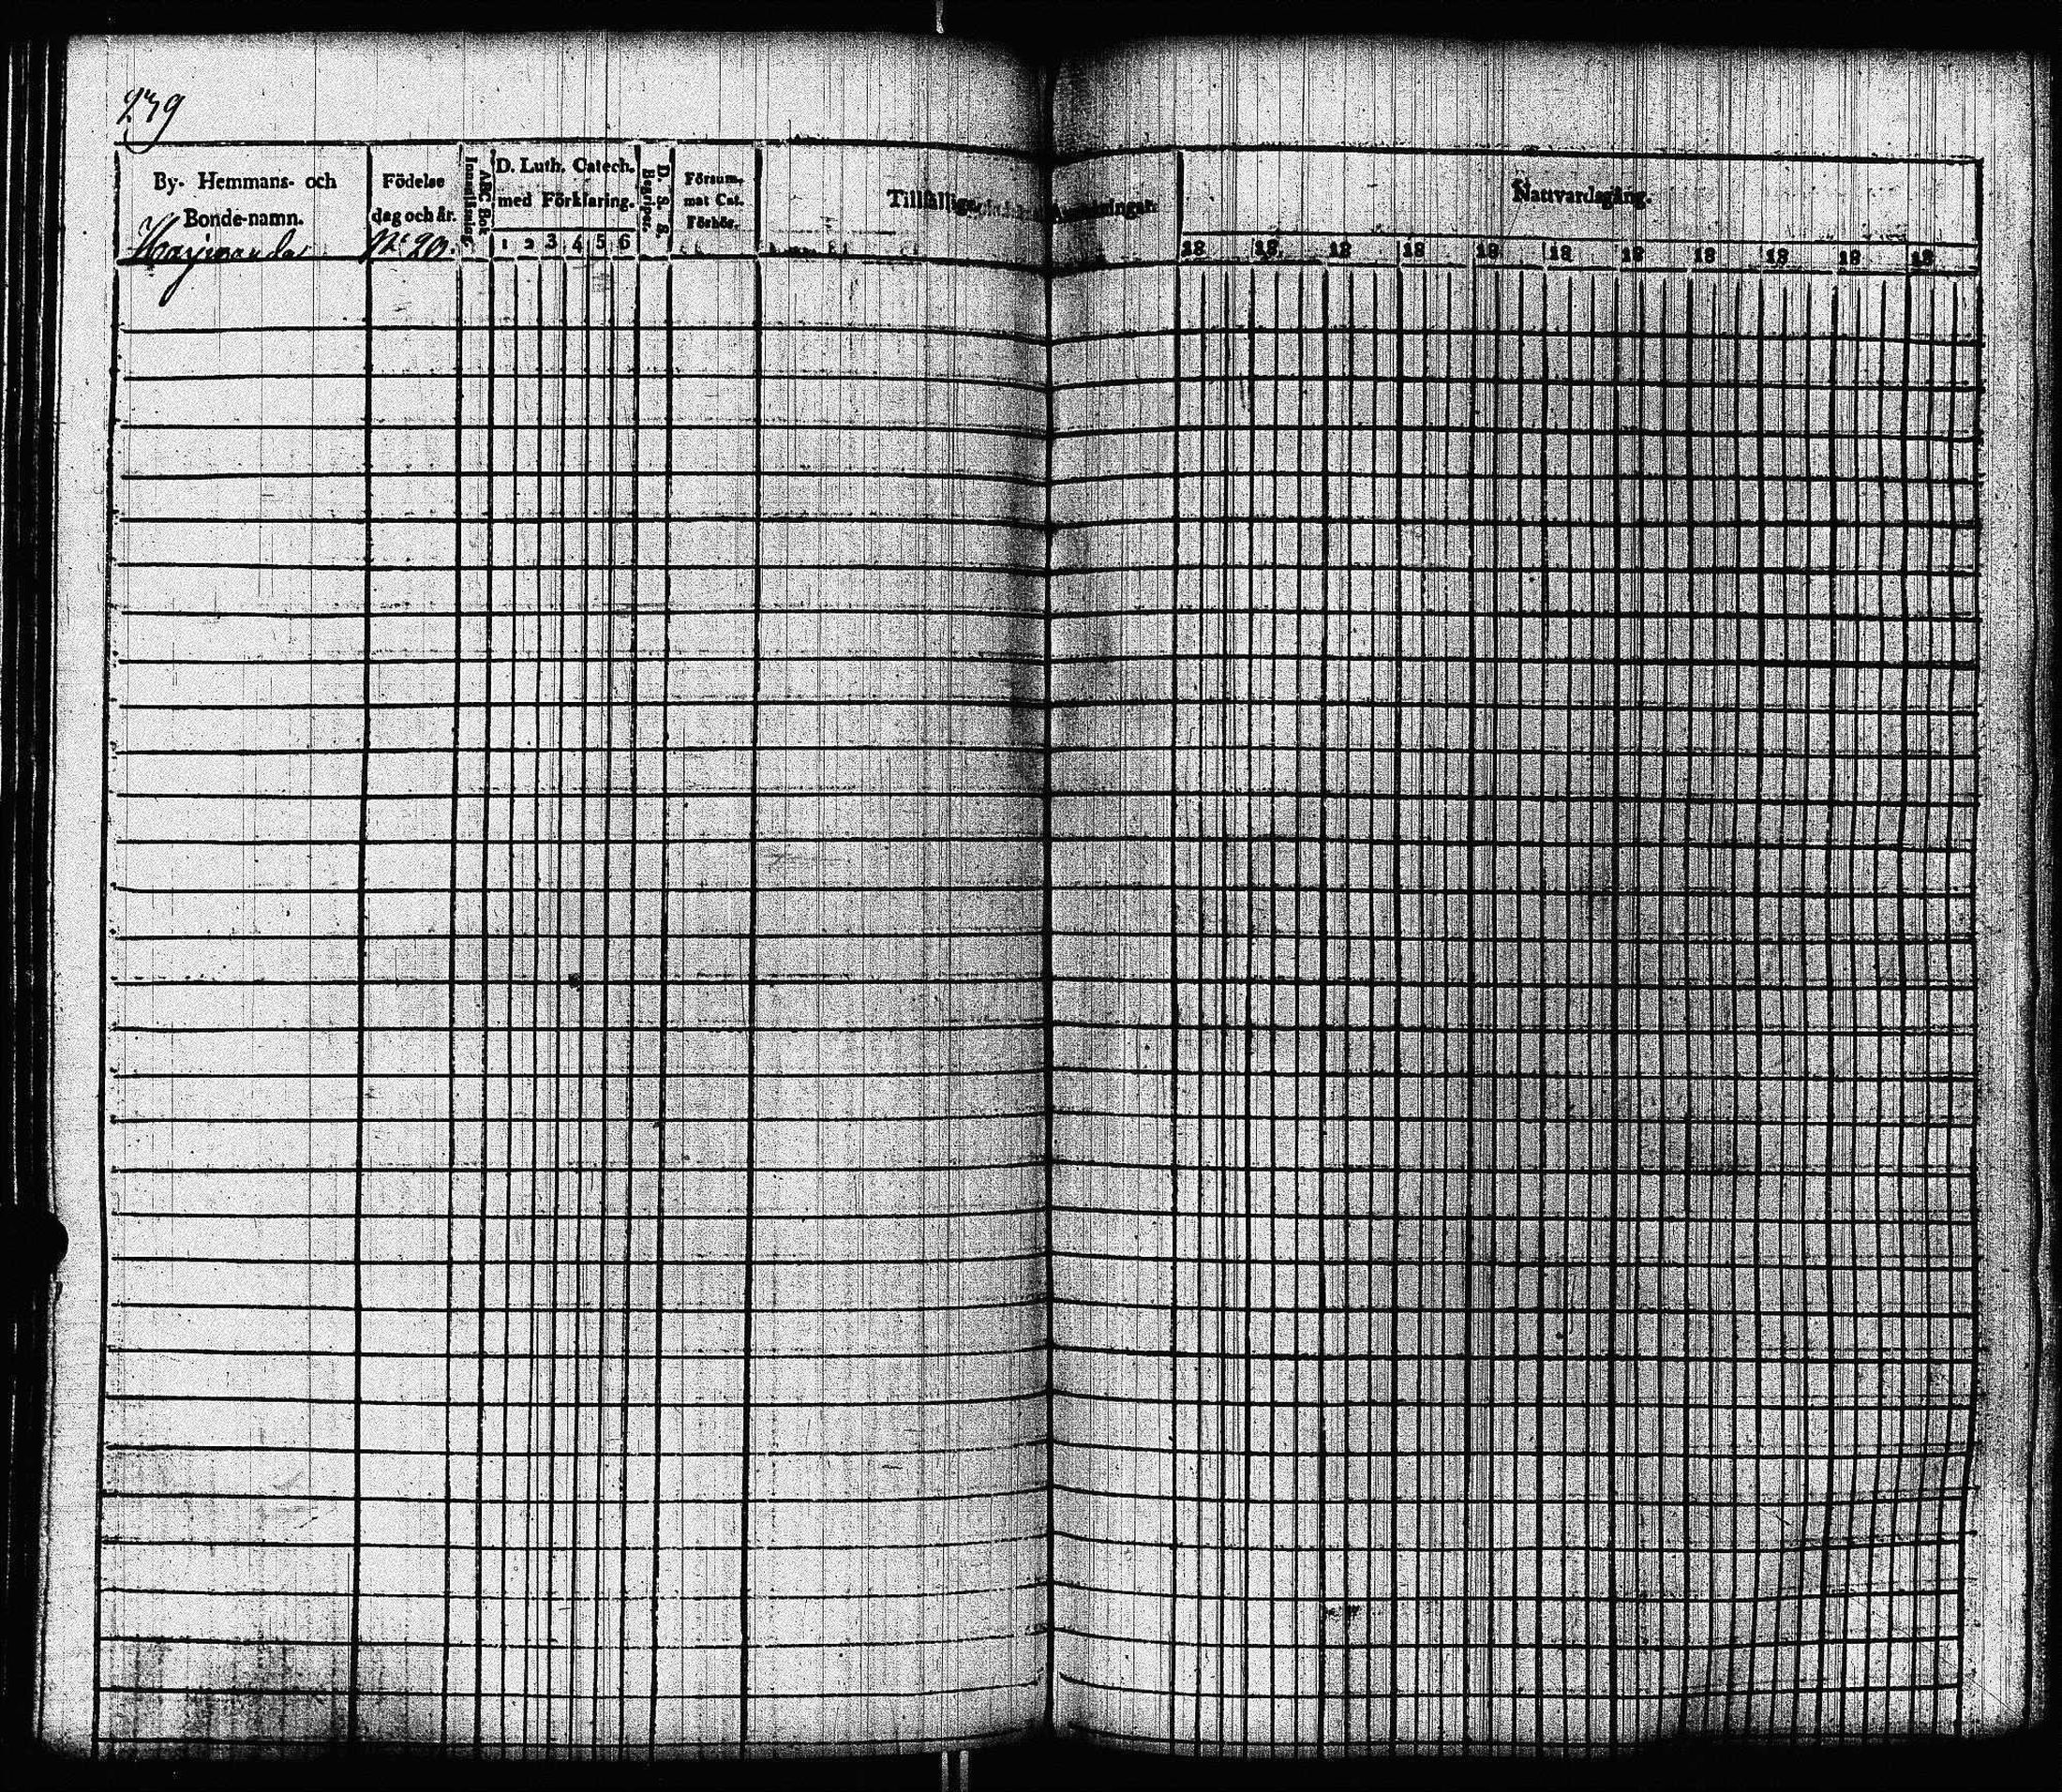 239
By- Hemmans- och
Bonde-namn.
Födelse
dag och år.
Innanläsning
ABC Bok
D. Luth. Catech.
med Förklaring.
1 2 3 4 5 6
D. S. R.
Begriper.
Försum-
mat Cat.
Förhör.
Nattvardsgång.
18 18 18 18 18 18 18 18 18 18 18